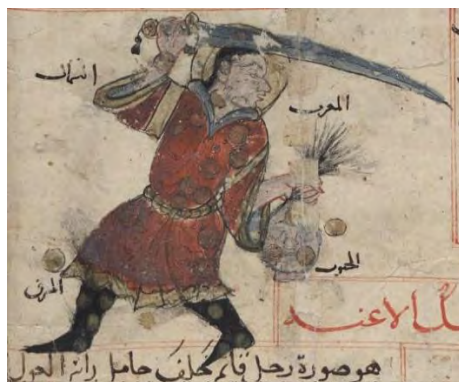 الشمال
المغرب
الجنوب
المشرق
الاعنه
هو صورة رجل قائم خلف حامل راس الغول